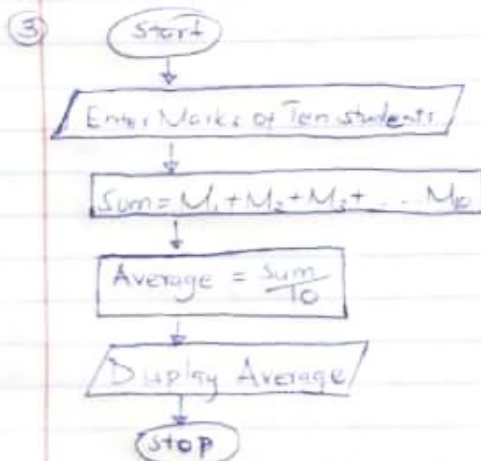 ③
Start
Enter Marks of Ten students
Sum = M₁ + M₂ + M₃ + ... M₁₀
Average = Sum/10
Display Average
Stop